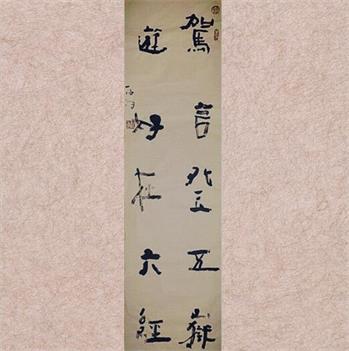 駕言登五嶽
遊好在六經